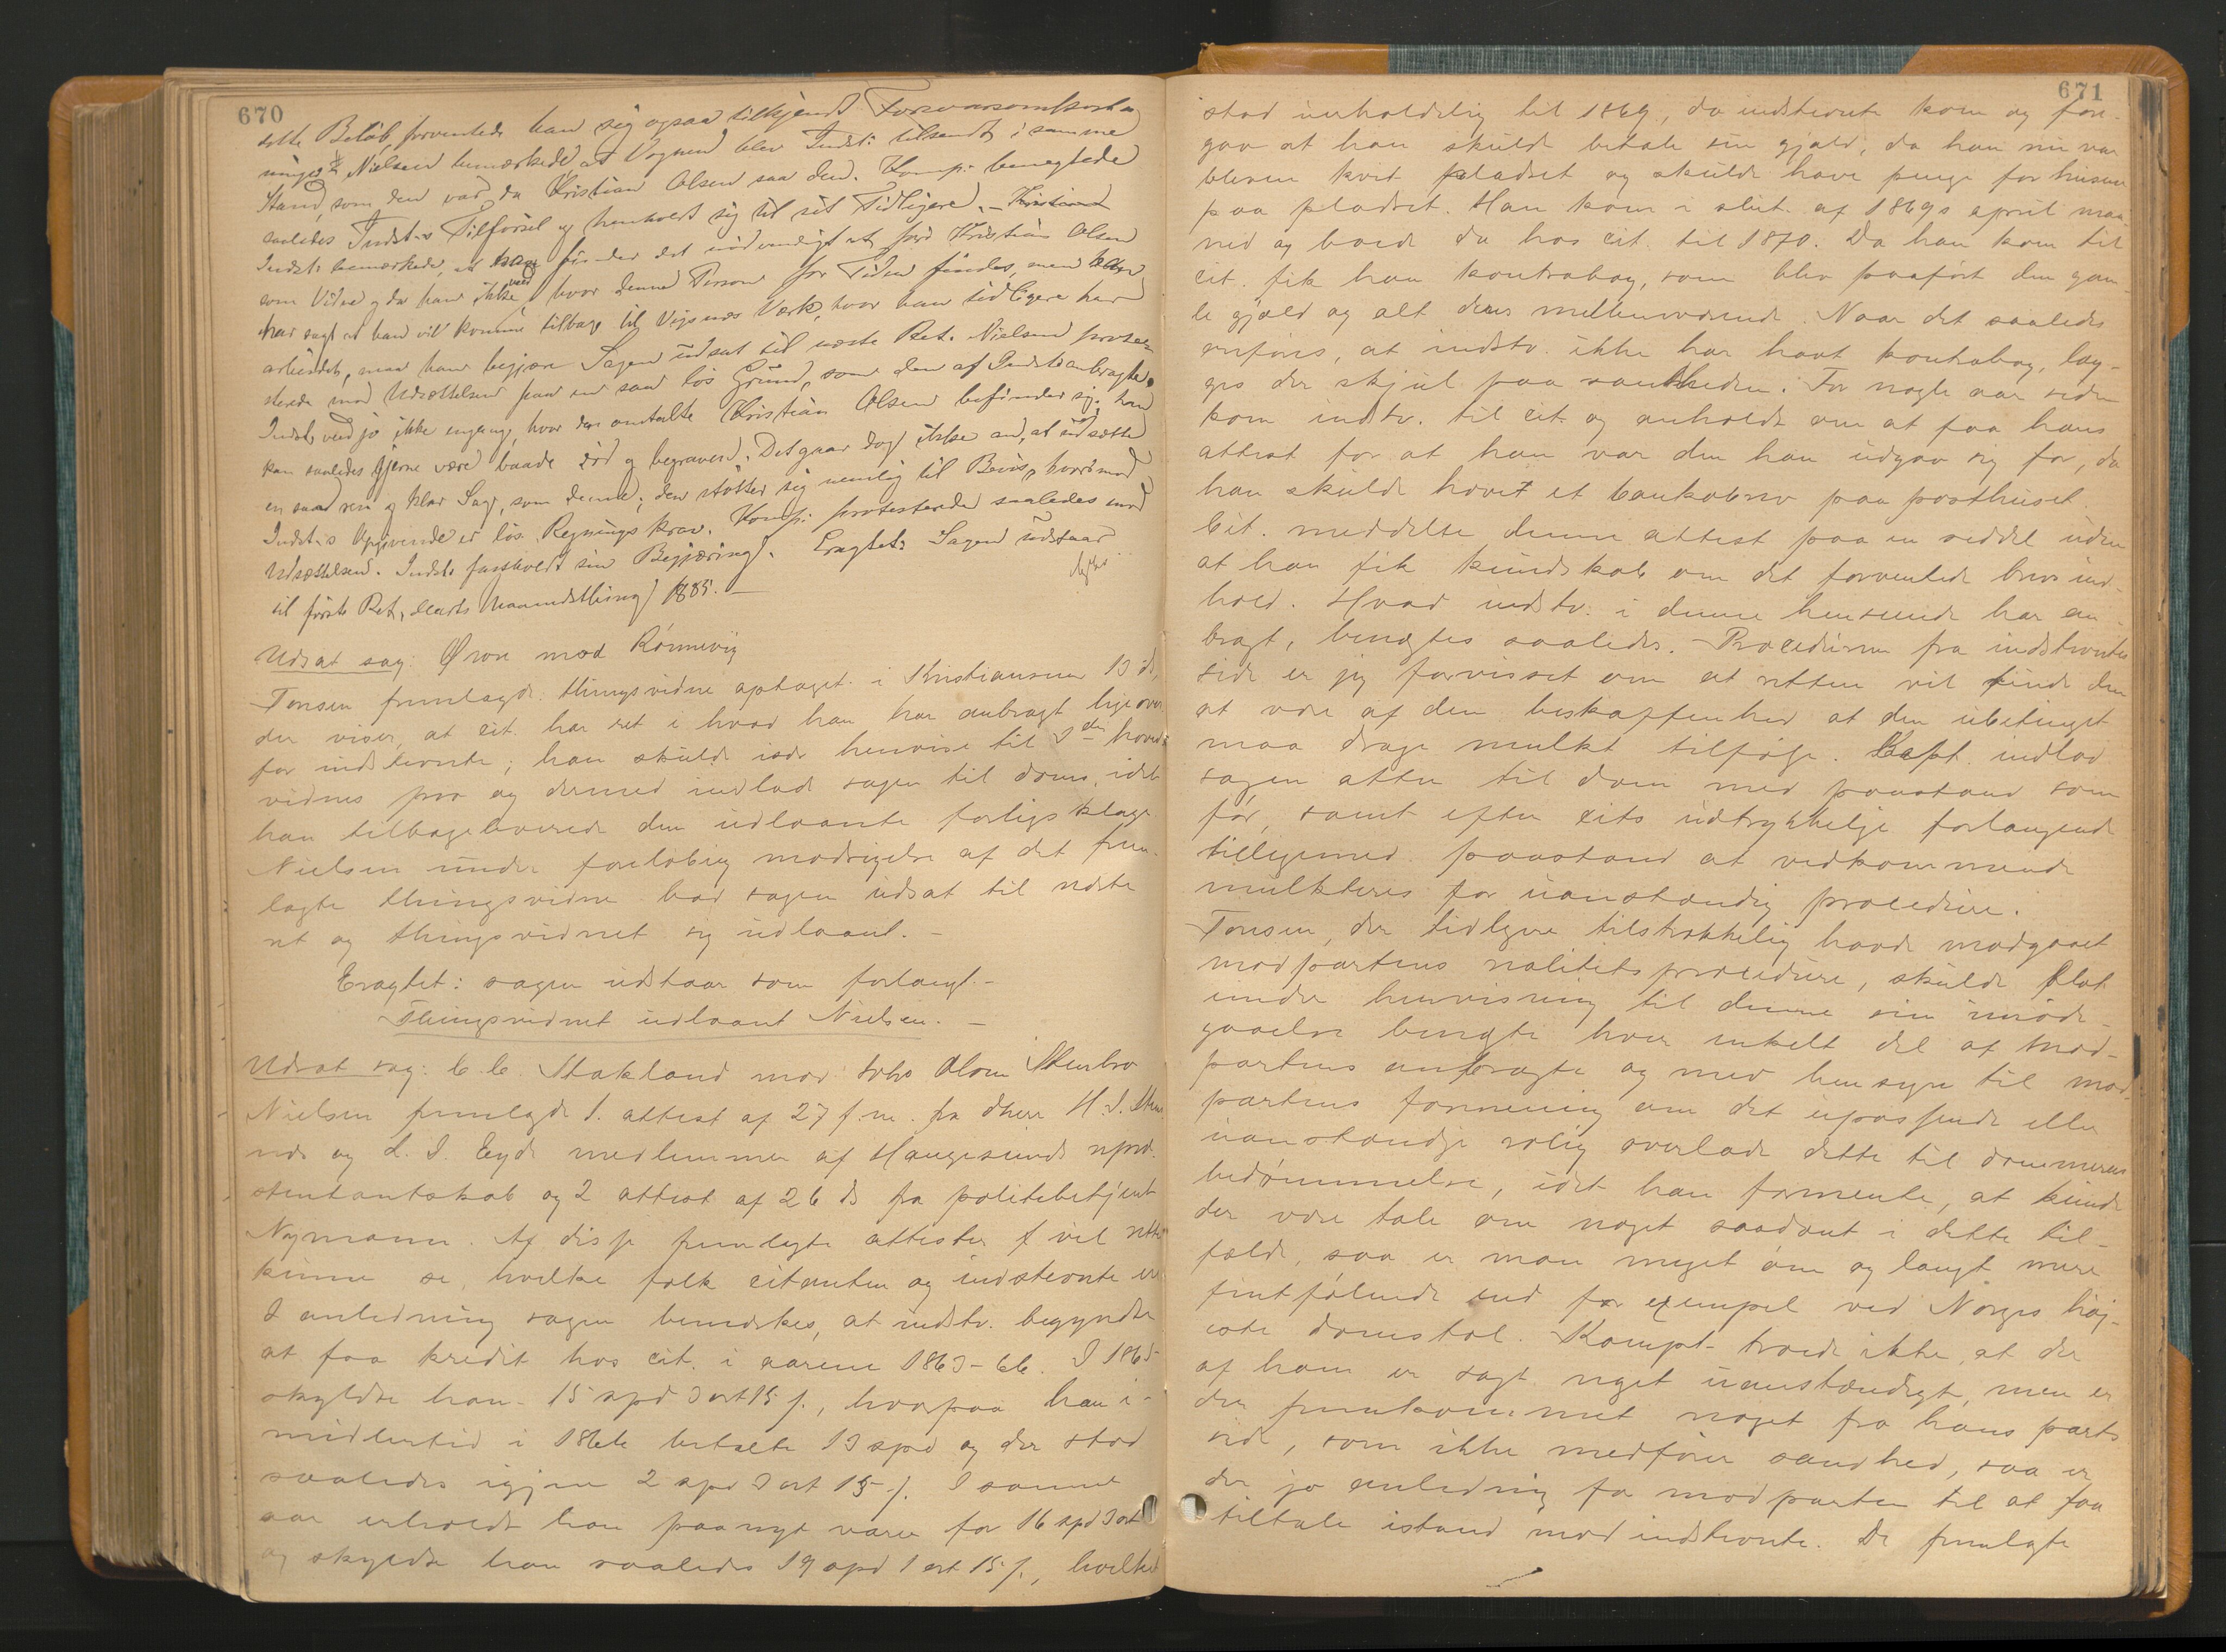 670
dette Beløb, forventede han sig ogsaa tilkjendt Forsvarsomkost-
ninger. Nielsen bemærkede at Vognen blev Indst: tilsendt i samme
Stand, som den var, da Kristian Olsen saa den. Komp: benegtede
saaledes Indst:s Tilførsel og henholdt sig til sit Tidligere. –
Indst: bemærkede, at han finder det nødvendigt at føre Kristian Olsen
som Vidne og da han ikke ved hvor denne Person for Tiden findes, men han
har sagt at han vil komme tilbage til Vigsnes Værk, hvor han tidligere har
arbeidet, maa han begjære Sagen udsat til næste Ret. Nielsen prote-
sterede mod Udsættelsen paa en saa løs Grund, som den af Indst: anbragte.
Indst: ved jo ikke engang, hvor den omtalte Kristian Olsen befinder sig; han
kan saaledes gjerne være baade død og begraven. Det gaar dog ikke an, at udsætte
en saa ren og klar Sag, som denne; den støtter sig nemlig til Bevis, hvorimod
Indst:s Opgivende er løs Regnings krav. Komp: protesterede saaledes mod
Udsættelsen. Indst: fastholdt sin Begjæring. Eragtet: Sagen udstaar
til første Ret, Marts Maanedsthing 1885. –
Udsat sag: Øvre mod Rønnevig
Tonsen fremlagde thingsvidne optaget i Kristiansund 13 ds,
der viser, at cit. har ret i hvad han har anbragt ligeover
for indstevnte; han skulde især henvise til 3die hoved
vidnes prov og dermed indlod sagen til doms, idet
han tilbageleverede den udlaante forligsklage
Nielsen under foreløbig modsigelse af det frem-
lagte thingsvidne bad sagen udsat til næste
ret og thingsvidnet sig udlaant. –
Eragtet: sagen udstaar som forlangt. –
Thingsvidnet udlaant Nielsen. –
Udsat sag: C. C. Stakland mod Olsen Stenbro
Nielsen fremlagde 1. attest af 27 f. m. fra dherr H. J.
og L. J. Eyde medlemmer af Haugesunds repræ-
sentantskab og 2 attest af 26 ds fra politibetjent
Nymann. Af disse fremlagte attester vil retten
kunne se, hvilke folk citanten og indstevnte er
I anledning sagen bemærkes, at indstv. begyndte
at faa kredit hos cit. i aarene 1863-66. I 1865
skyldte han 15 spd 3 ort 15 s., hvorpaa han i-
midlertid i 1866 betalte 13 spd og der stod
saaledes igjen 2 spd 3 ort 15 s. I samme
aar erholdt han paa nye varer for 16 spd 3 ort
og skyldte han saaledes 19 spd 1 ort 15 s., hvilket
671
stod uerholdelig til 1869, da indstevnte kom og fore-
gav at han skulde betale sin gjæld, da han nu var
bleven kvit pladset og skulde have penge for husene
paa pladset. Han kom i slut. af 1869s april maa-
ned og boede da hos cit. til 1870. Da han kom til
cit. fik han kontrabog, som blev paaført den gam-
le gjæld og alt deres mellemværende. Naar det saaledes
anføres, at indstv. ikke har havt kontrabog, læg-
ges der skjul paa sandheden. For nogle aar siden
kom indstv. til cit. og anholdt om at faa hans
attest for at han var den han udgav sig for, da
han skulde hævet et bankobrev paa posthuset.
Cit. meddelte denne attest paa en seddel uden
at han fik kundskab om det forventede brevs ind-
hold. Hvad indstv. i denne henseende har an-
bragt, benægtes saaledes. Proceduren fra indstevntes
side er jeg forvisset om at retten vil finde den
at være af den beskaffenhed at den ubetinget
maa drage mulkt tilfølge. Kopt. indlod
sagen atter til dom med paastand som
før, samt efter cits udtrykkelige forlangende
tilligemed paastand at vedkommende
mulkteres for uanstændig procedure.
Tonsen, der tidligere tilstrækkelig havde modgaaet
modpartens realitetsprocedure, skulde blot
under henvisning til denne sin imøde-
gaaelse benægte hver enkelt del af mod-
partens anbragte og med hensyn til mod-
partens formening om det upassende eller
uanstændige rolig overlade dette til dommerens
bedømmelse, idet han formente, at kunde
der være tale om noget saadant i dette til-
fælde, saa er man meget øm og langt mere
fintfølende end for exempel ved Norges høi-
este domstol. Kompt. troede ikke, at der
af ham er sagt noget uanstændigt, men er
der fremkommet noget fra hans parts
side, som ikke medfører sandhed, saa er
der jo anledning for modparten til at faa
tiltale istand mod indstevnte. De fremlagte